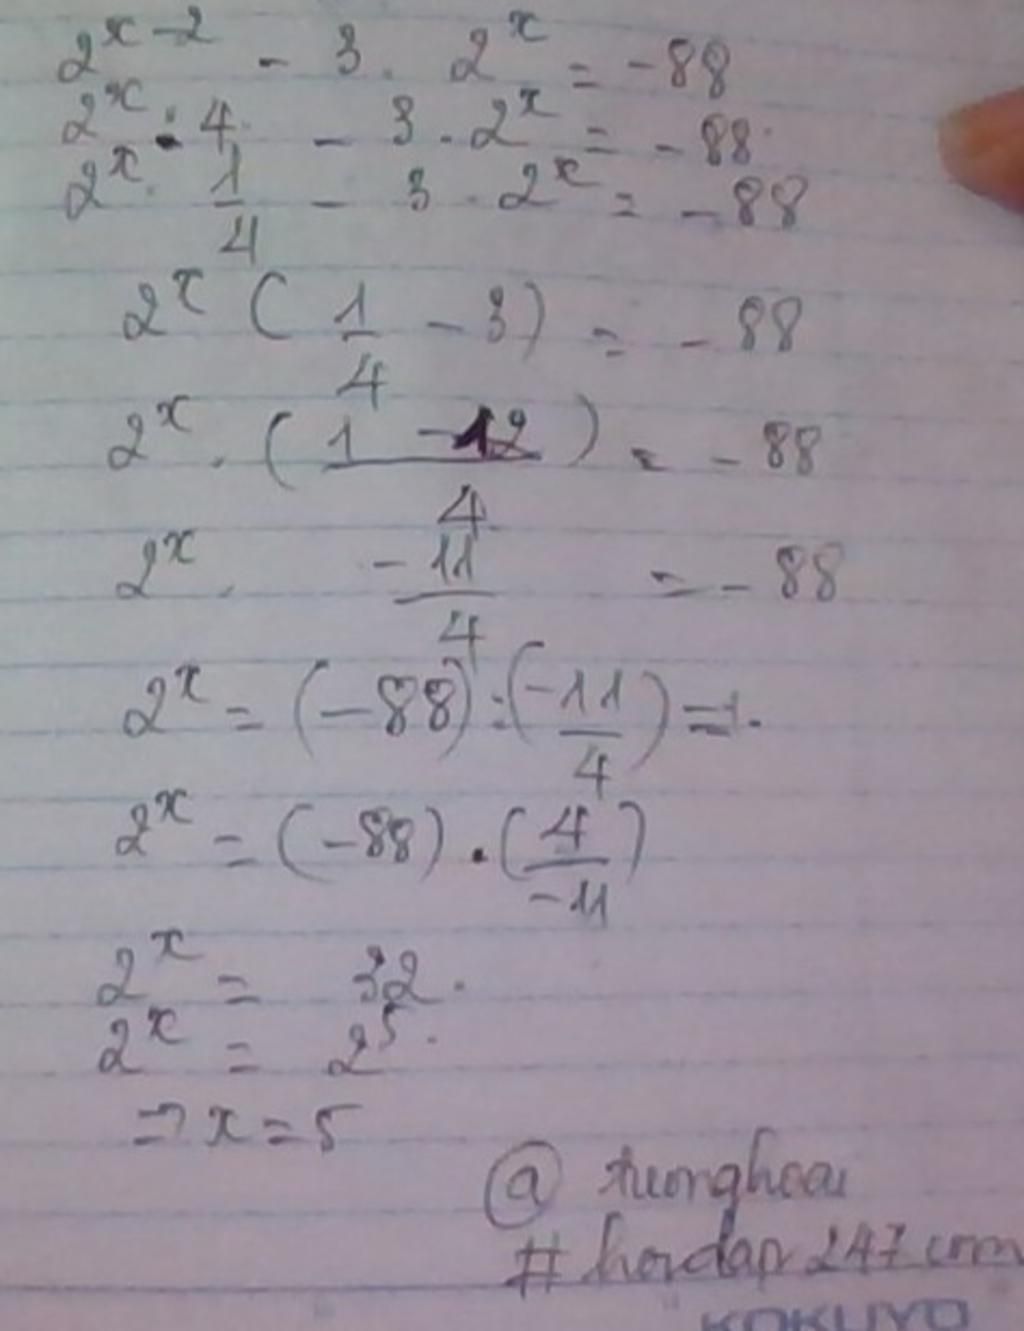 2^{x-2} - 3 . 2^x = -88
2^x : 4 - 3 . 2^x = -88
2^x . \frac{1}{4} - 3 . 2^x = -88
2^x ( \frac{1}{4} - 3 ) = -88
2^x . ( \frac{1 - 12}{4} ) = -88
2^x . \frac{-11}{4} = -88
2^x = (-88) : ( \frac{-11}{4} )
2^x = (-88) . ( \frac{4}{-11} )
2^x = 32 .
2^x = 2^5 .
⇒ x = 5
@
# hoidap247.com
KOKUYO